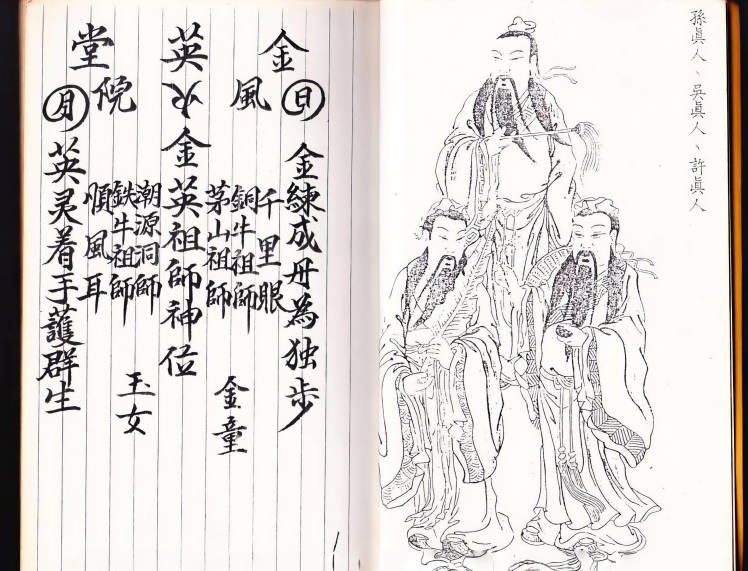 孫眞人、吳眞人、許眞人
金英堂
風火院
日
金練成丹為独步
千里眼
銅牛祖師
茅山祖師
金童
金英祖師神位
潮源洞師
鉄牛祖師
順風耳
玉女
月
英灵着手護群生